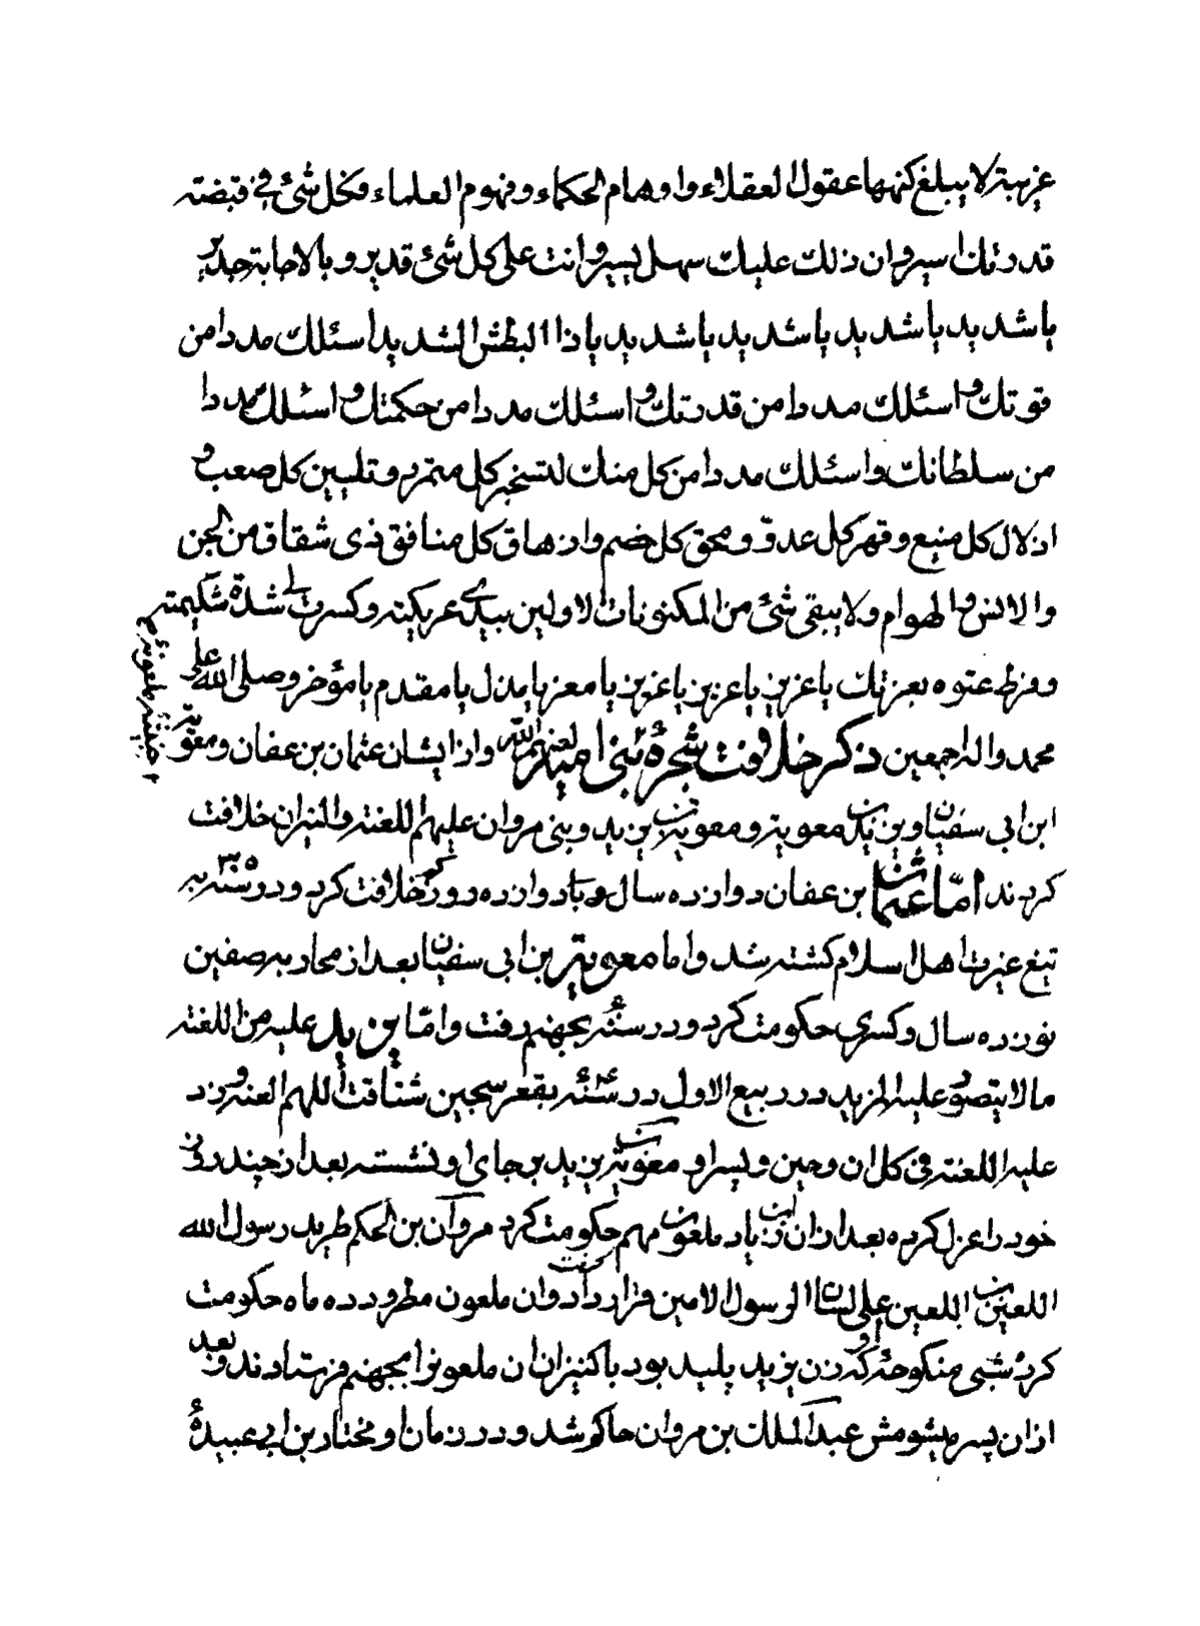 غریبة لا یبلغ کنهها عقول العقلاء و اوهام الحکماء و فهوم العلماء فکل شئ فی قبضته
قدرتك اسیر و ان ذلك علیك سهل یسیر و انت علی کل شئ قدیر و بالاجابة جدیر
یا شدید یا شدید یا شدید یا شدید یا ذا البطش الشدید اسئلك مددا من
قوتك و اسئلك مددا من قدرتك و اسئلك مددا من حکمتك و اسئلك مددا
من سلطانك و اسئلك مددا من کل منك لتسخیر کل متمرد و تلیین کل صعب و
اذلال کل منیع و قهر کل عدوّ و محق کل خصم و ازهاق کل منافق ذی شقاق من الجن
و الانس و الهوام و لا یبقی شئ من المکنونات الا و لین بیدی عریکته و کسرت لی شدة شکیمته
و فرط عتوه بعزتك یا عزیز یا عزیز یا عزیز یا معز یا مذل یا مقدم یا مؤخر و صلی الله علی
محمد و اله اجمعین ذکر خلافت شجرهٔ بنی امیه لعنهم الله و از ایشان عثمان بن عفان و معویة
ابن ابی سفیان و یزید بن معویة و معویة بن یزید و بنی مروان علیهم اللعنة و النیران خلافت
کردند امّا عثمان بن عفان دوازده سال و یا دوازده روز کم خلافت کرد و در سنه ۳۵ به
تیغ غیرت اهل اسلام کشته شد و اما معویة بن ابی سفیان بعد از محاربه صفین
نوزده سال و کسری حکومت کرد و در سنه بجهنم رفت و امّا یزید علیه من اللعنه
ما لا یتصور علیه المزید در ربیع الاول در سنه بقعر سجین شتافت اللهم العنه و زد
علیه اللعنة فی کل ان و حین و پسر او معویة بن یزید بر جای او نشسته بعد از چند روزی
خود را عزل کرده بعد از ان ابن زیاد ملعون مهم حکومت کرد مروان بن الحکم طرید رسول الله
اللعین بن اللعین علی لسان الرسول الامین قرار داد و ان ملعون مطرود ده ماه حکومت
کرد شبی منکوحهٔ او که زن یزید پلید بود با کنیزان ان ملعونرا بجهنم فرستادند و بعد
از ان پسر میشومش عبد الملك بن مروان حاکم شد و در زمان او مختار بن ابی عبیدهٔ